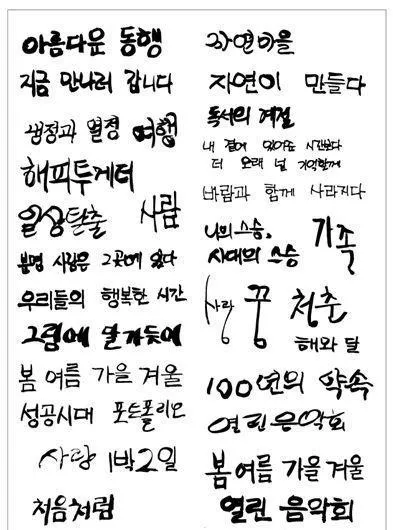 아름다운 동행
지금 만나러 갑니다
냉정과 열정 여행
해피투게더
일상탈출 사람
분명 사람은 그곳에 있다
우리들의 행복한 시간
그럼에 달 가듯에
봄 여름 가을 겨울
성공시대 포트폴리오
사랑 1박2일
처음처럼
자연마을
자연이 만들다
독서의 계절
내 곁에 있어도 시간보다
더 오래 널 기억할께
바람과 함께 사라지다
나의 스승,
시대의 스승
가족
사랑 꿈 청춘
해와 달
100년의 약속
열린음악회
봄 여름 가을 겨울
열린 음악회